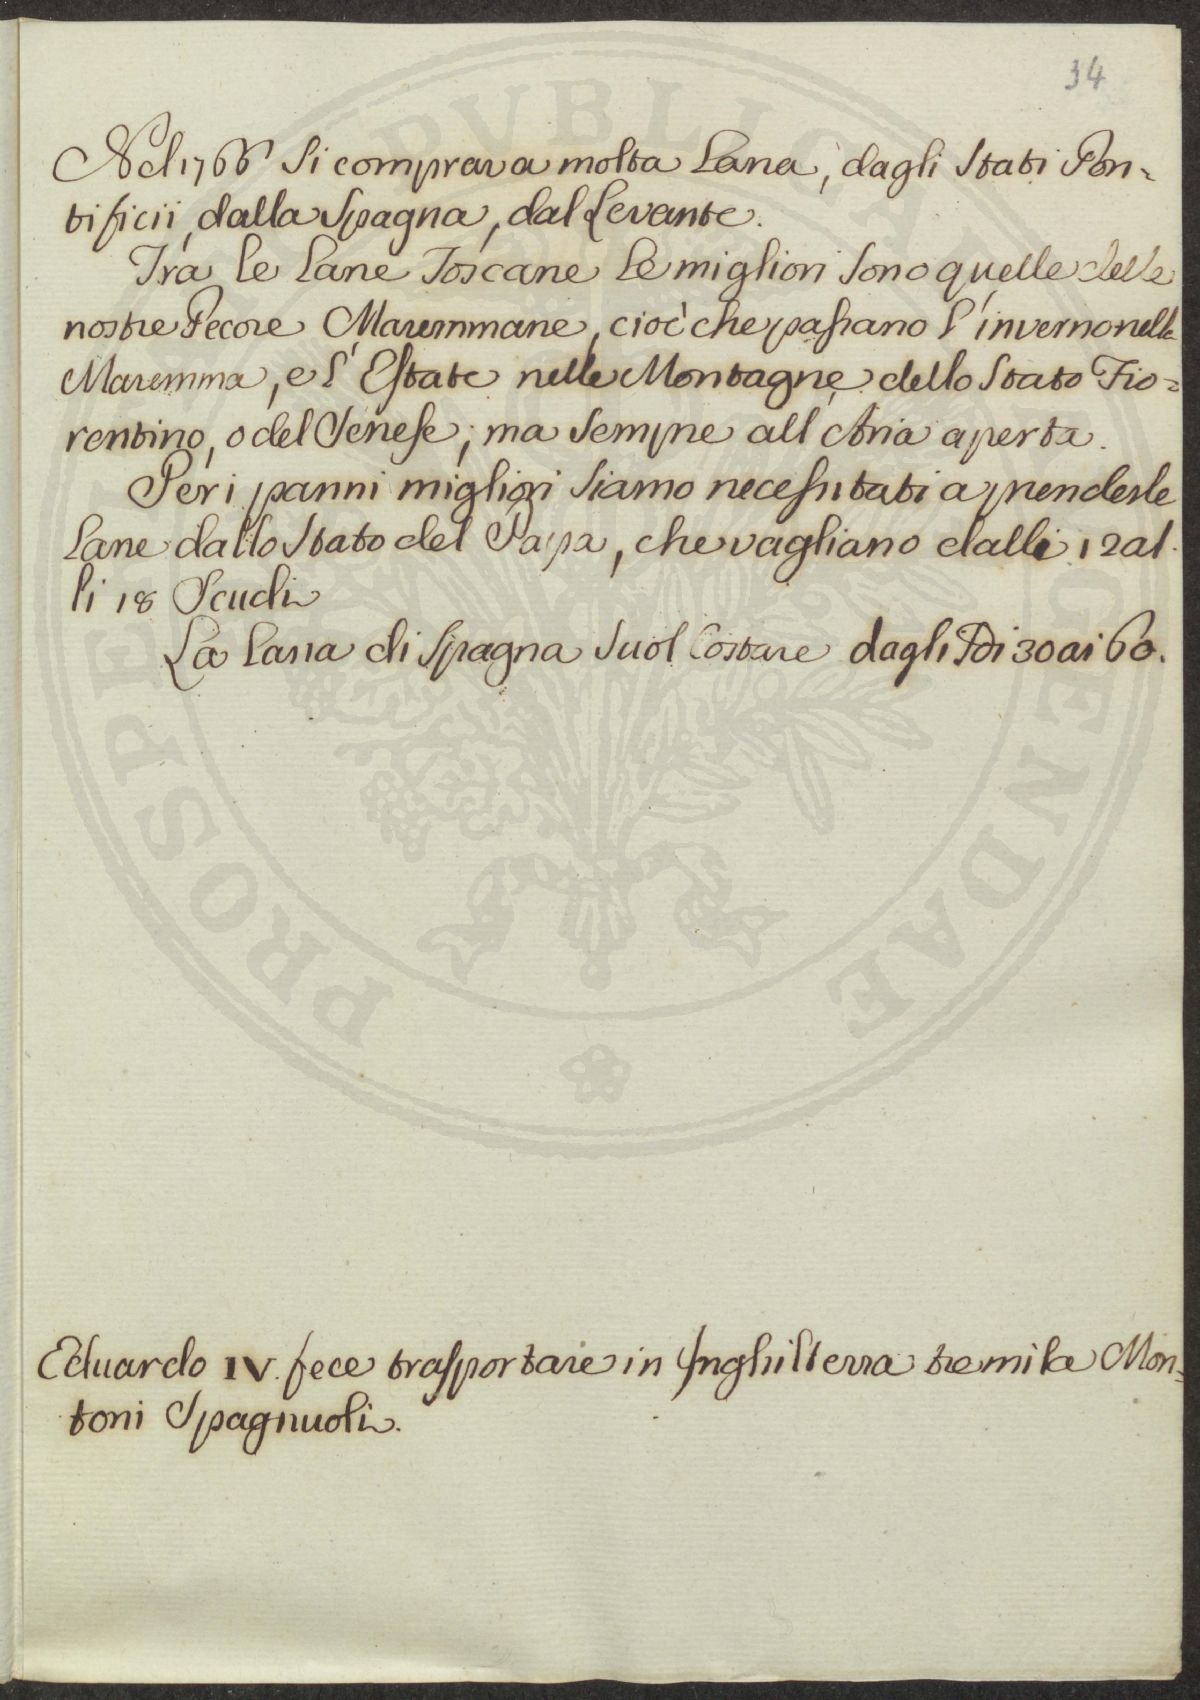 34
Nel 1766 si comprava molta Lana, dagli Stati Pon=
tificii, dalla Spagna, dal Levante.
Tra le Lane Toscane le migliori sono quelle delle
nostre Pecore Maremmane, cioè che passano l'inverno nella
Maremma, e l'Estate nelle Montagne dello Stato Fio=
rentino, o del Senese, ma sempre all'Aria aperta.
Per i panni migliori siamo necessitati a prender le
Lane dallo Stato del Papa, che vagliano dalli 12 al
li 18 Scudi
La Lana di Spagna suol Costare dagli Sdi 30 ai 60.
Eduardo IV. fece trasportare in Inghilterra tre mila Mon=
toni Spagnuoli.
PROSPERITATI PUBLICAE AUGENDAE